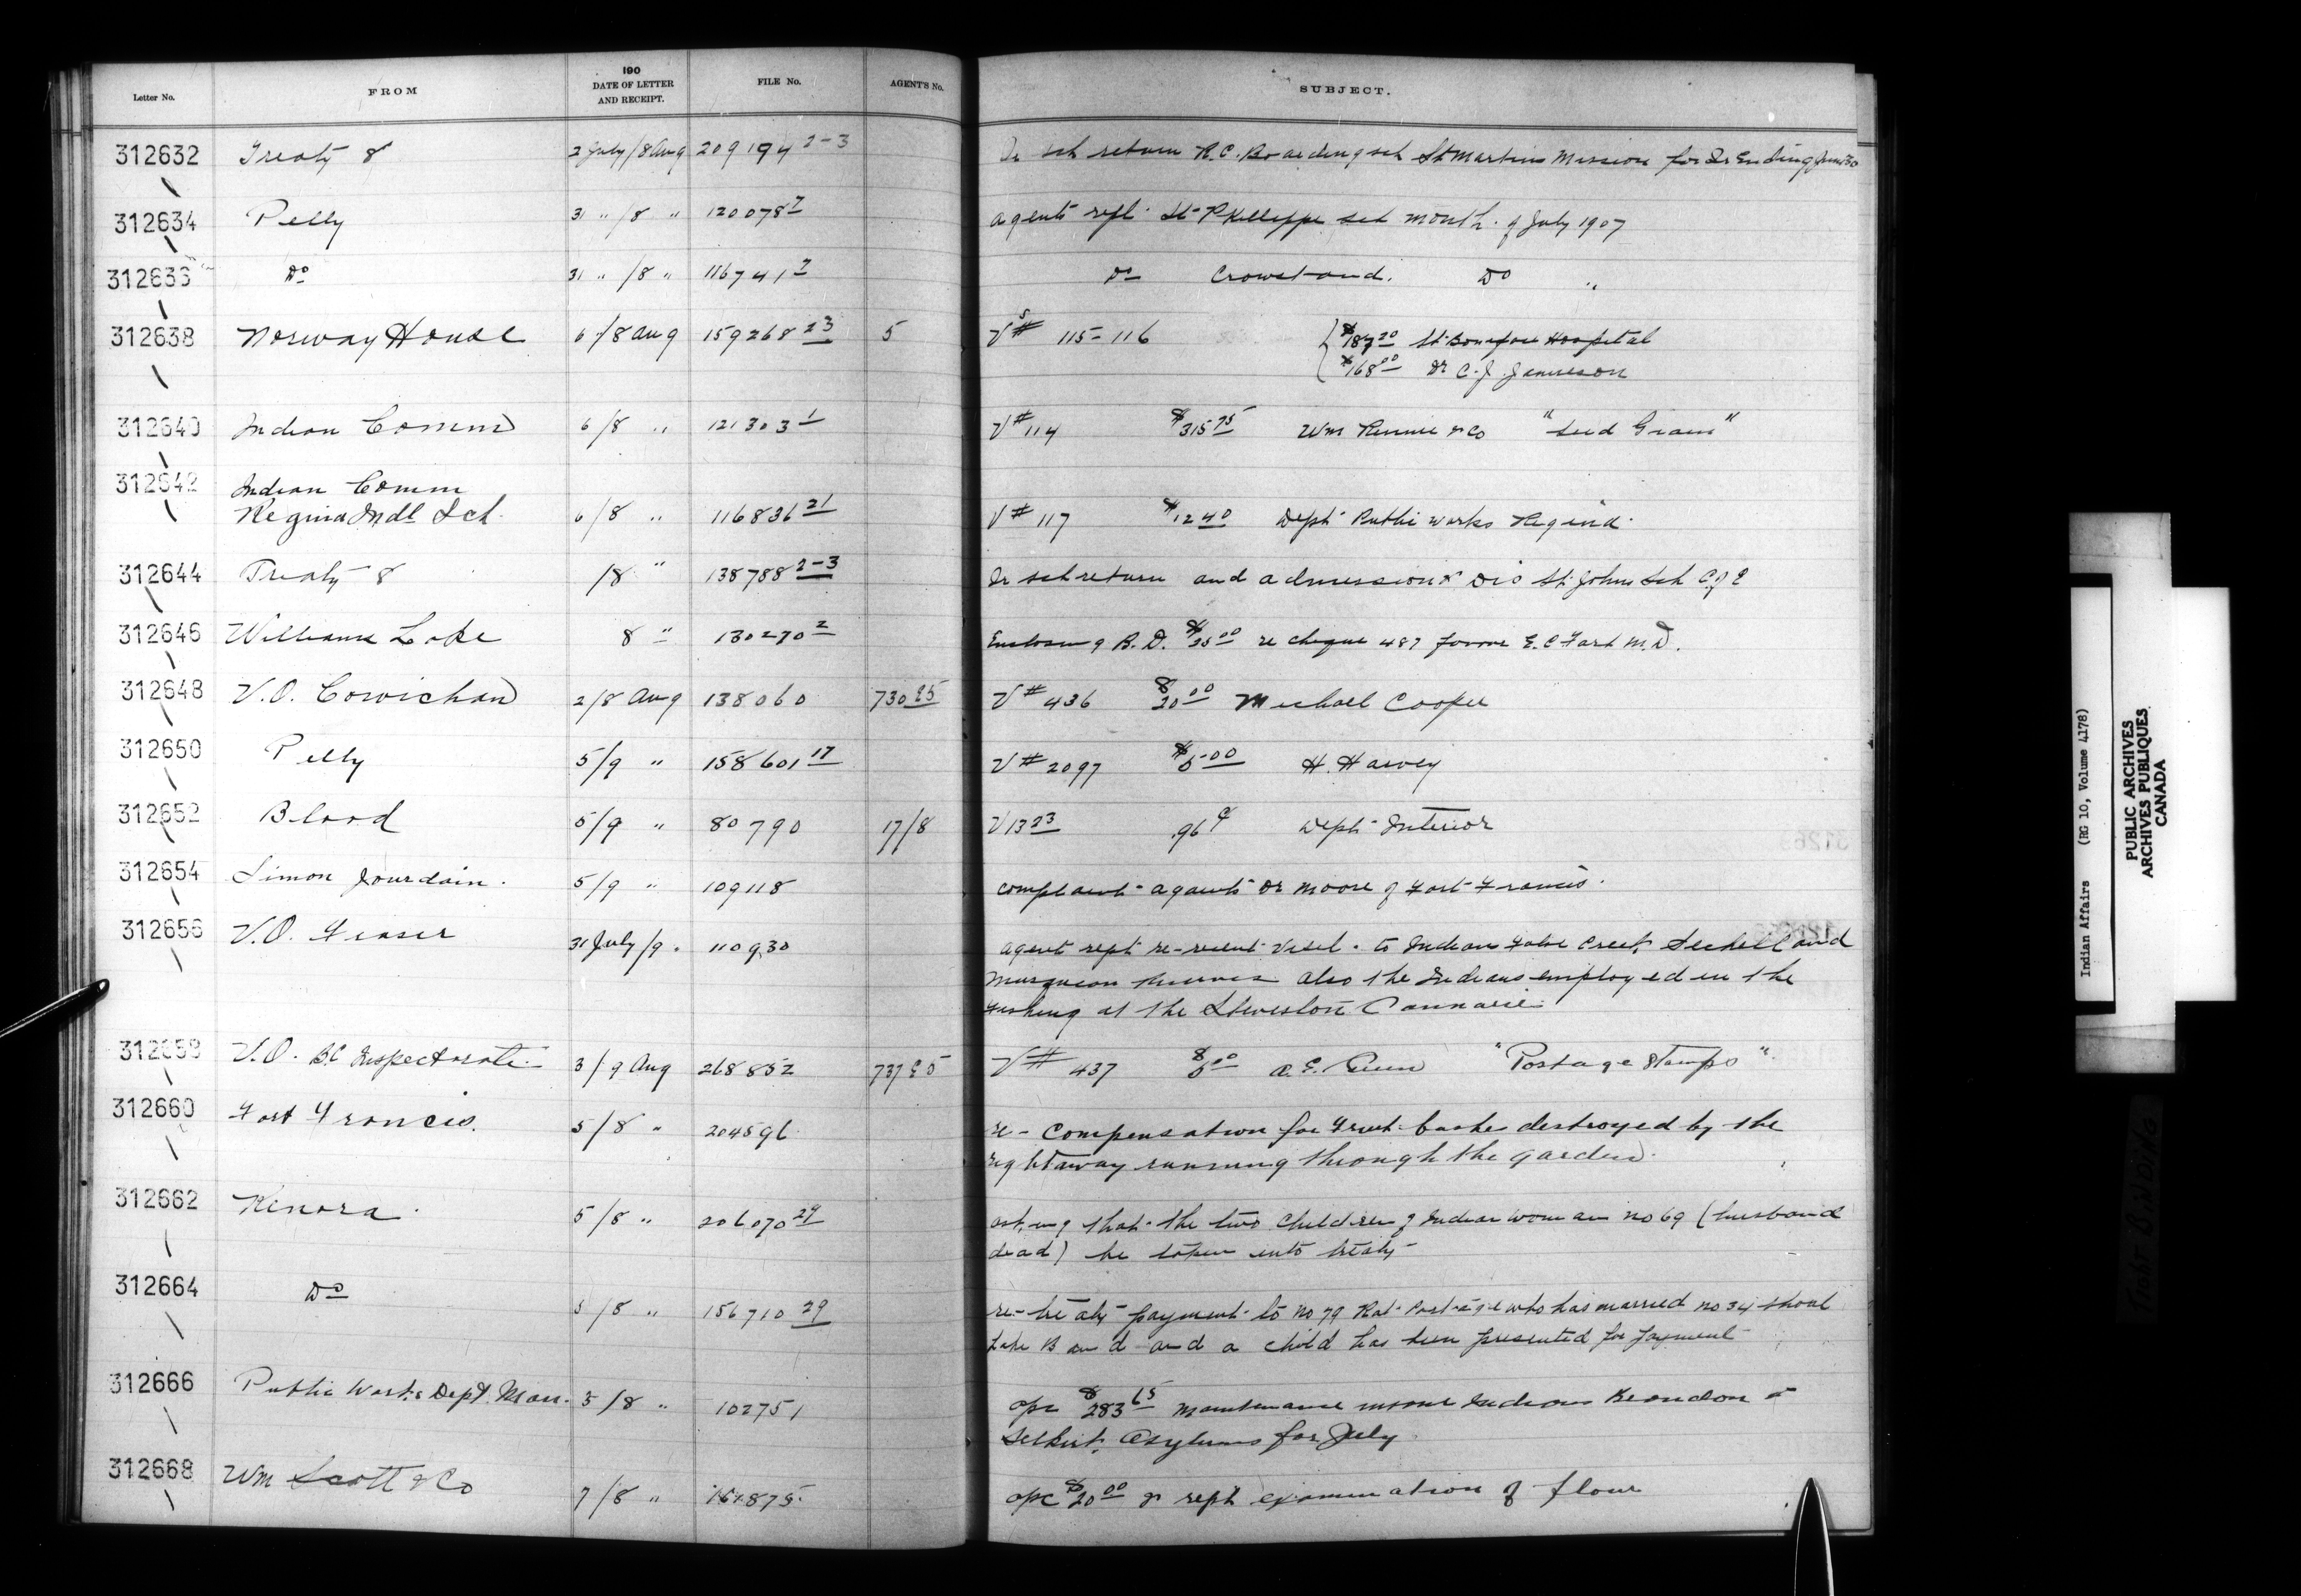 Letter No. FROM 190 DATE OF LETTER AND RECEIPT. FILE No. AGENT'S No. SUBJECT.
312632 Treaty 8 2 July/8 Aug 209194 2-3 Qr sch return R.C. Boarding sch St Martins Mission for Qr Ending June 30
312634 Pelly 31 " /8 " 120078 7 agents rept St Phillippe sch month of July 1907
312636 Do 31 " /8 " 116741 7 Do Crowstand. Do "
312638 Norway House 6/8 Aug 159268 23 5 Vs # 115-116 $187 20 St Boniface Hospital
$168 00 Dr C. J. Jamieson
312640 Indian Comm 6/8 " 121303 1 V # 114 $315 75 Wm Rennie & Co "Seed Grain"
312642 Indian Comm
Regina Indl Sch. 6/8 " 116836 21 V # 117 $12 40 Dept Public works Regina.
312644 Treaty 8 /8 " 138788 2-3 Qr sch return and admission & Dis St. Johns Sch C of E
312646 Williams Lake 8 " 130270 2 Enclosing B. D. re cheque 487 favour E. C M.D.
312648 V.O. Cowichan 2/8 Aug 138060 730 V # 436 $20 00 Michael Cooper
312650 Pelly 5/9 " 158601 17 V # 2097 $5 00 H. Harvey
312652 Blood 5/9 " 80790 17/8 V 13 23 .96 ¢ Dept Interior
312654 Simon Jourdain. 5/9 " 109118 complaint against Dr Moore of Fort Francis.
312656 V.O. Fraser 31 July/9. 110930 agent rept re-recent visit to Indians False Creek Sechelt and
Musqueam also the Indians employed in the
Fishing at the Steveston Cannarie
312658 V.O. BC Inspectorate 3/9 Aug 268852 737 V # 437 $5 00 A. E. "Postage Stamps".
312660 Fort Francis. 5/8 " 204596 re- compensation for Fruit bushes destroyed by the
right away running through the garden.
312662 Kenora. 5/8 " 206070 29 asking that the two children of Indian woman no 69 (husband
dead) be taken into treaty
312664 Do 5/8 " 156710 29 re- treaty payment to no 79 Rat Portage who has married no 34 Shoal
Lake Band and a child has been presented for payment
312666 Public Works Dept. Man. 5/8 " 102751 opc $283 65 maintenance insane Indians Brandon &
Selkirk Asylums for July
312668 Wm Scott & Co 7/8 " opc $20 00 & rept examination of flour
Indian Affairs (RG 10, Volume 4178)
PUBLIC ARCHIVES
ARCHIVES PUBLIQUES
CANADA
TIGHT BINDING